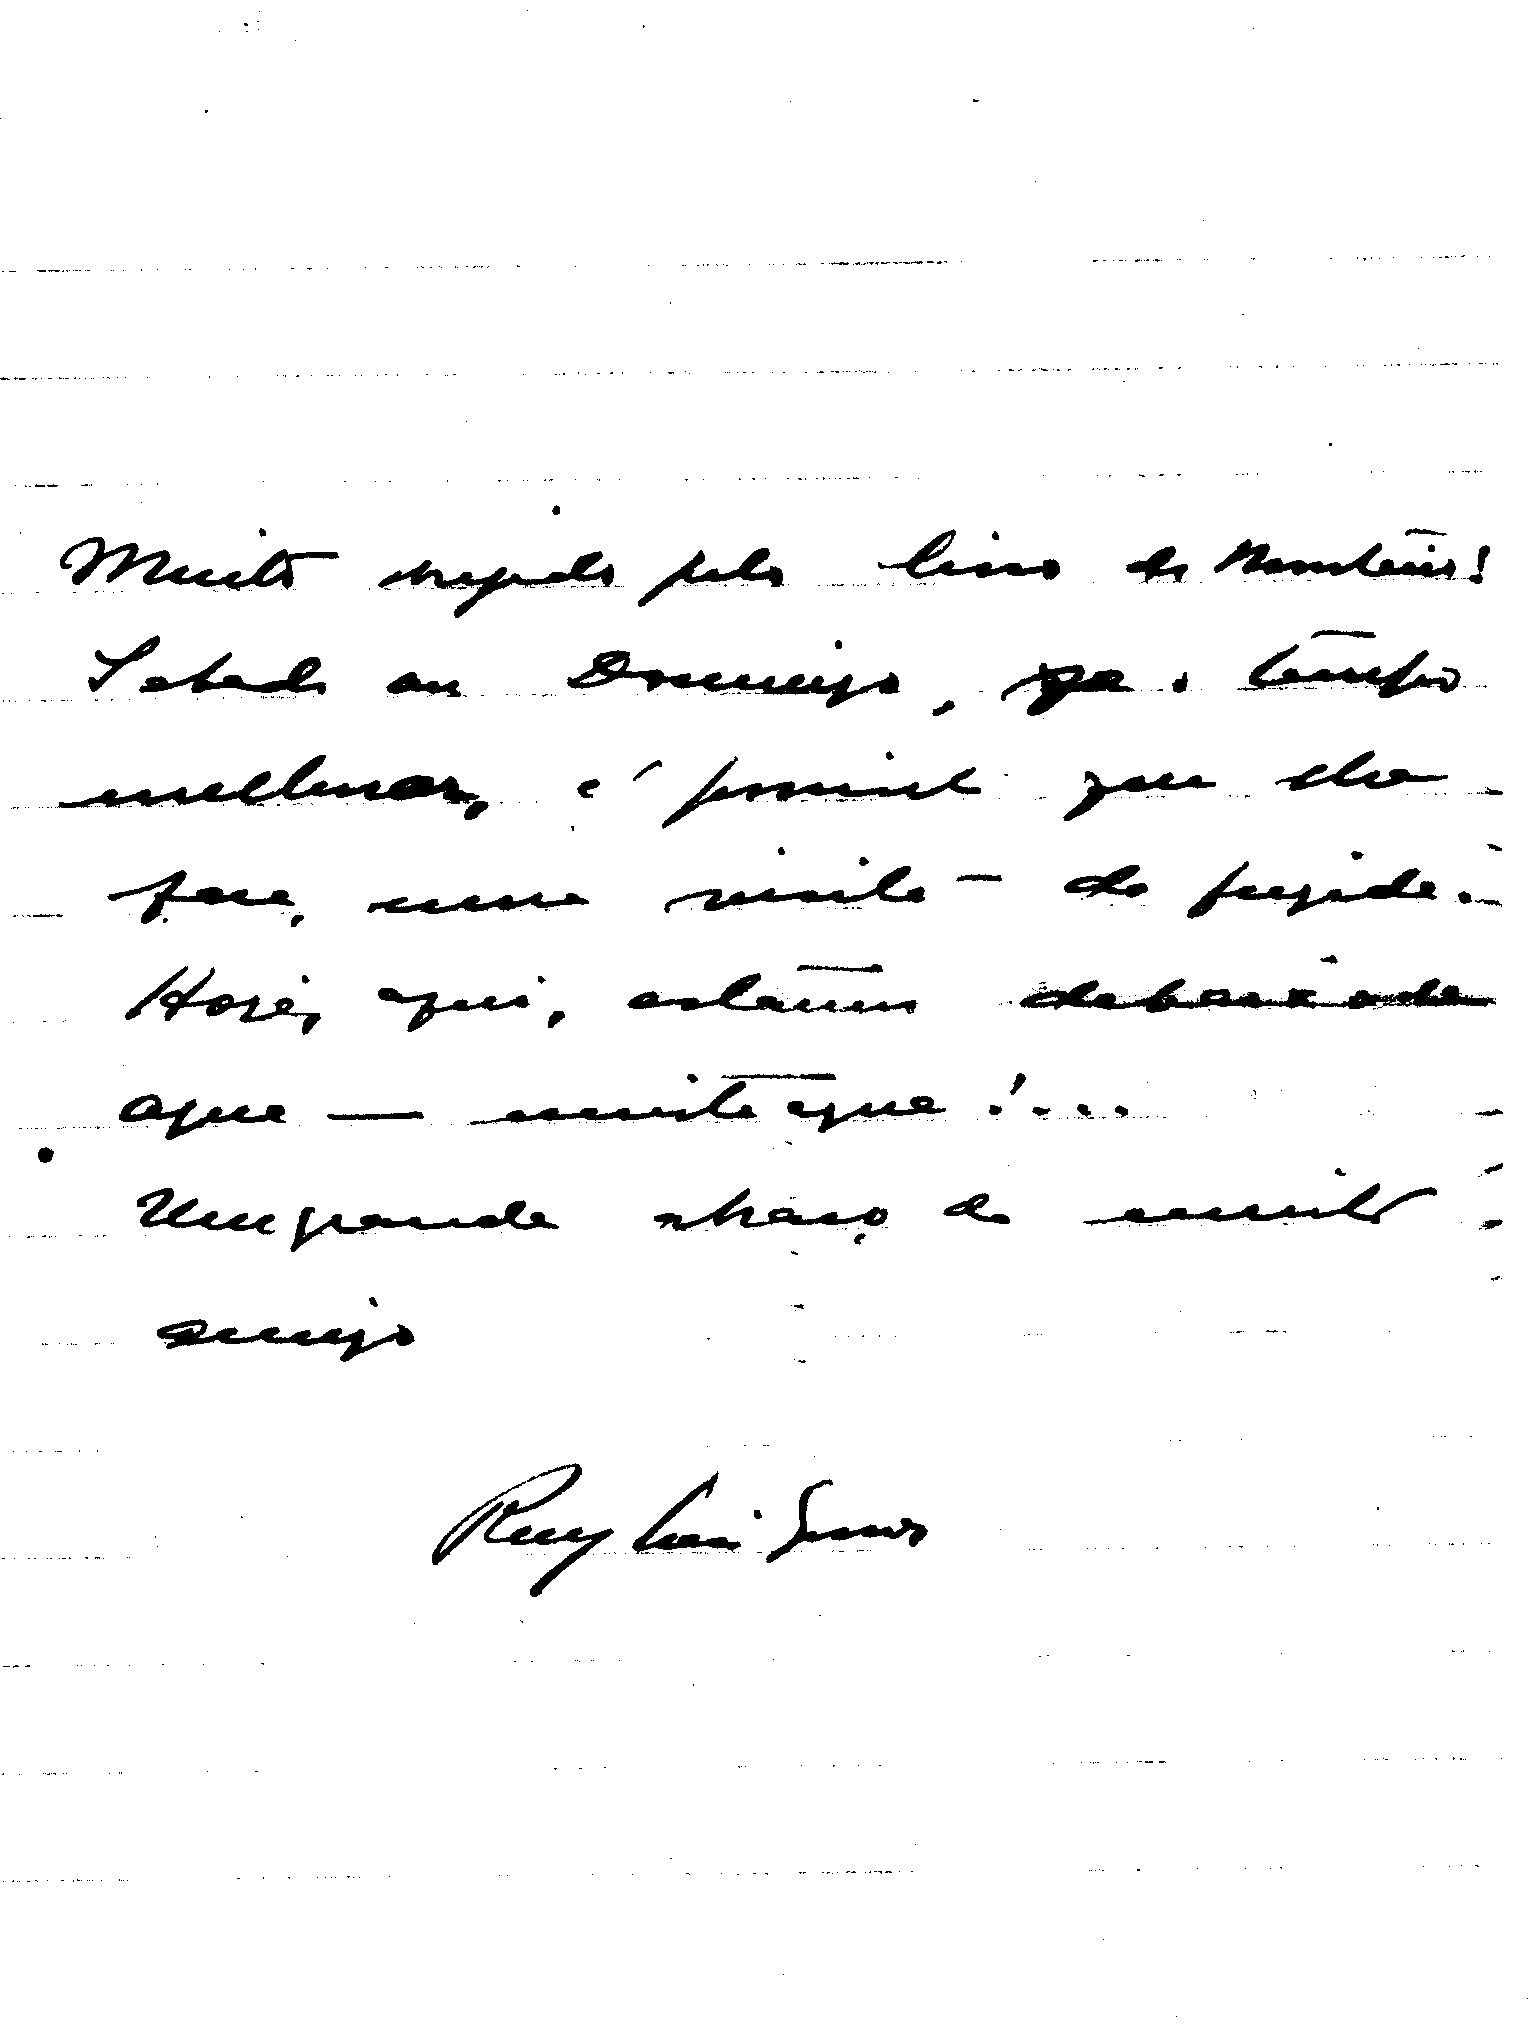 Muito obrigado pelo livro do Monteiro!
Sabado ou Domingo, se o tempo
melhorar, é possivel que lhe
faça, uma visita - de fugida.
Hoje, aqui, estamos debaixo de
agua — muita agua!...
Um grande abraço do muito
amigo
Ruy Luís Gomes